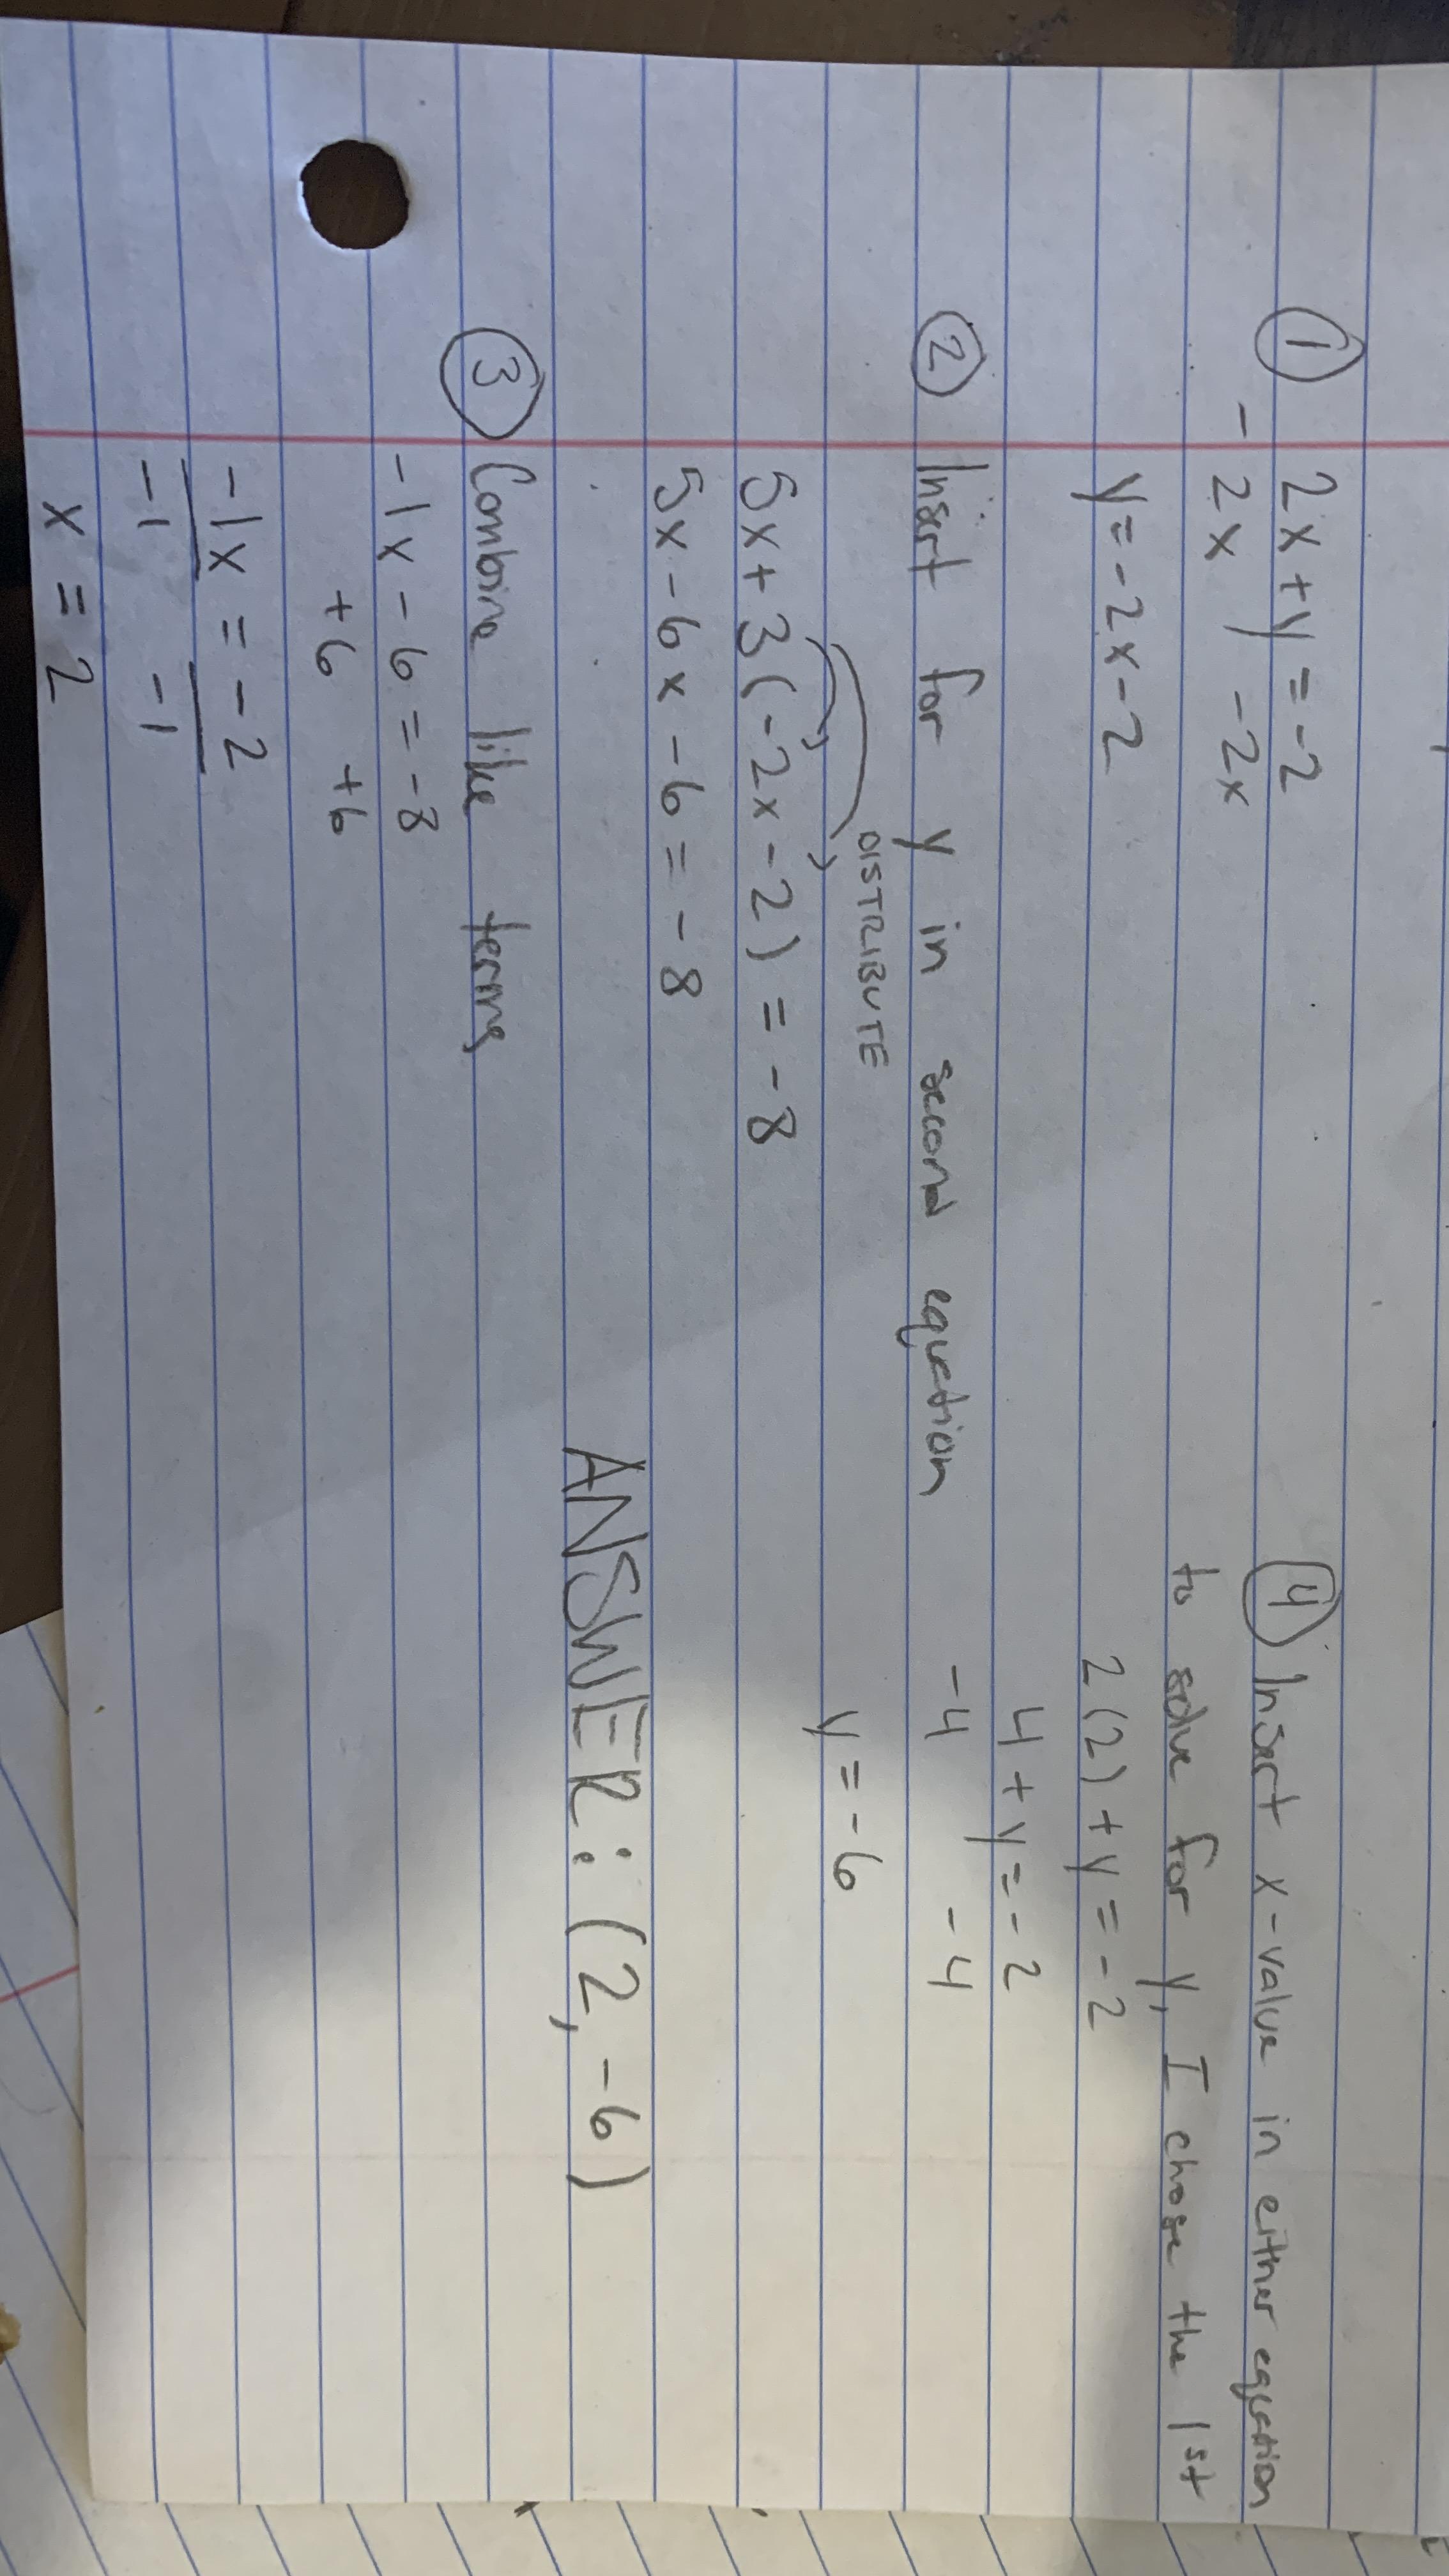 ① 2x + y = -2
- 2x -2x
y = -2x - 2
② Insert for y in second equation
DISTRIBUTE
5x + 3(-2x - 2) = -8
5x - 6x - 6 = -8
③ Combine like terms
-1x - 6 = -8
+6 +6
-1x = -2
-1 -1
x = 2
④ Insert x-value in either equation
to solve for y, I chose the 1st
2(2) + y = -2
4 + y = -2
-4 -4
y = -6
ANSWER: (2, -6)